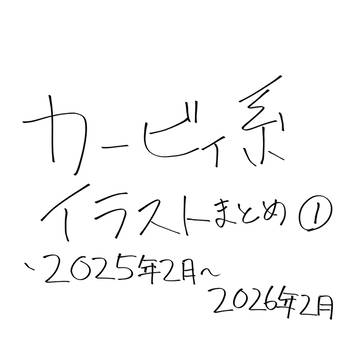 カービィ系
イラストまとめ①
、2025年2月~
2026年2月